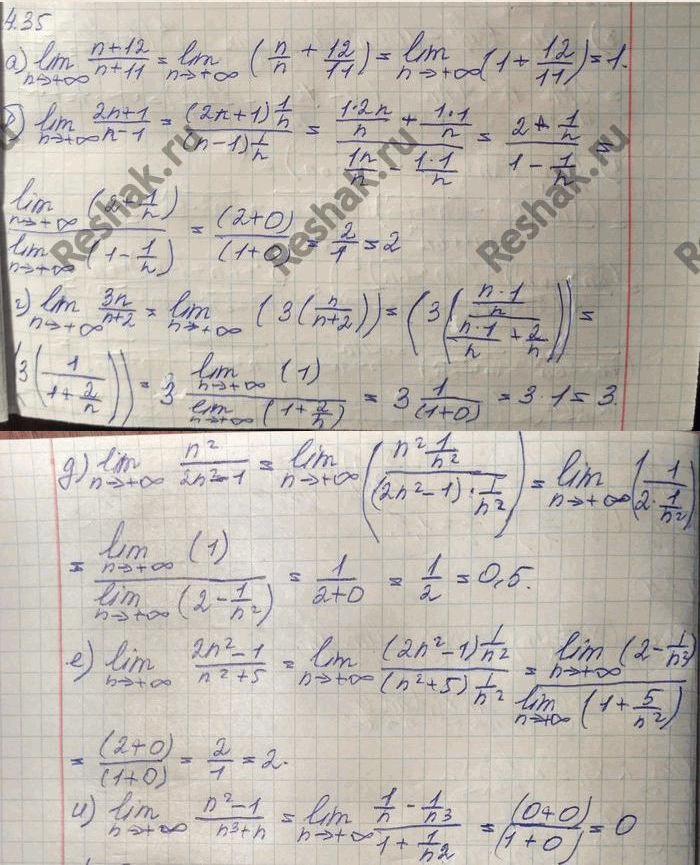 4.35
а) lim n→+∞ (n+12)/(n+11) = lim n→+∞ (n/n + 12/11) = lim n→+∞ (1 + 12/11) = 1.
б) lim n→+∞ (2n+1)/(n-1) = ((2n+1) 1/n)/((n-1) 1/n) = (1·2n/n + 1·1/n)/(1n/n - 1·1/n) = (2 + 1/n)/(1 - 1/n) =
lim n→+∞ (2 + 1/n) / lim n→+∞ (1 - 1/n) = (2+0)/(1+0) = 2/1 = 2
г) lim n→+∞ 3n/(n+2) = lim n→+∞ (3(n/(n+2))) = (3((n·1/n)/(n·1/n + 2/n))) =
(3(1/(1 + 2/n))) = 3 lim n→+∞ (1) / lim n→+∞ (1 + 2/n) = 3 1/(1+0) = 3 1 = 3.
д) lim n→+∞ n²/(2n²-1) = lim n→+∞ ((n² 1/n²)/((2n²-1)·1/n²)) = lim n→+∞ (1/(2·1/n²))
= lim n→+∞ (1) / lim n→+∞ (2 - 1/n²) = 1/(2+0) = 1/2 = 0,5.
е) lim n→+∞ (2n²-1)/(n²+5) = lim n→+∞ ((2n²-1) 1/n²)/((n²+5) 1/n²) = lim n→+∞ (2 - 1/n³) / lim n→+∞ (1 + 5/n²)
= (2+0)/(1+0) = 2/1 = 2.
и) lim n→+∞ (n²-1)/(n³+n) = lim n→+∞ (1/n - 1/n³)/(1 + 1/n²) = (0+0)/(1+0) = 0
Reshak.ru
Reshak.ru
Reshak.ru